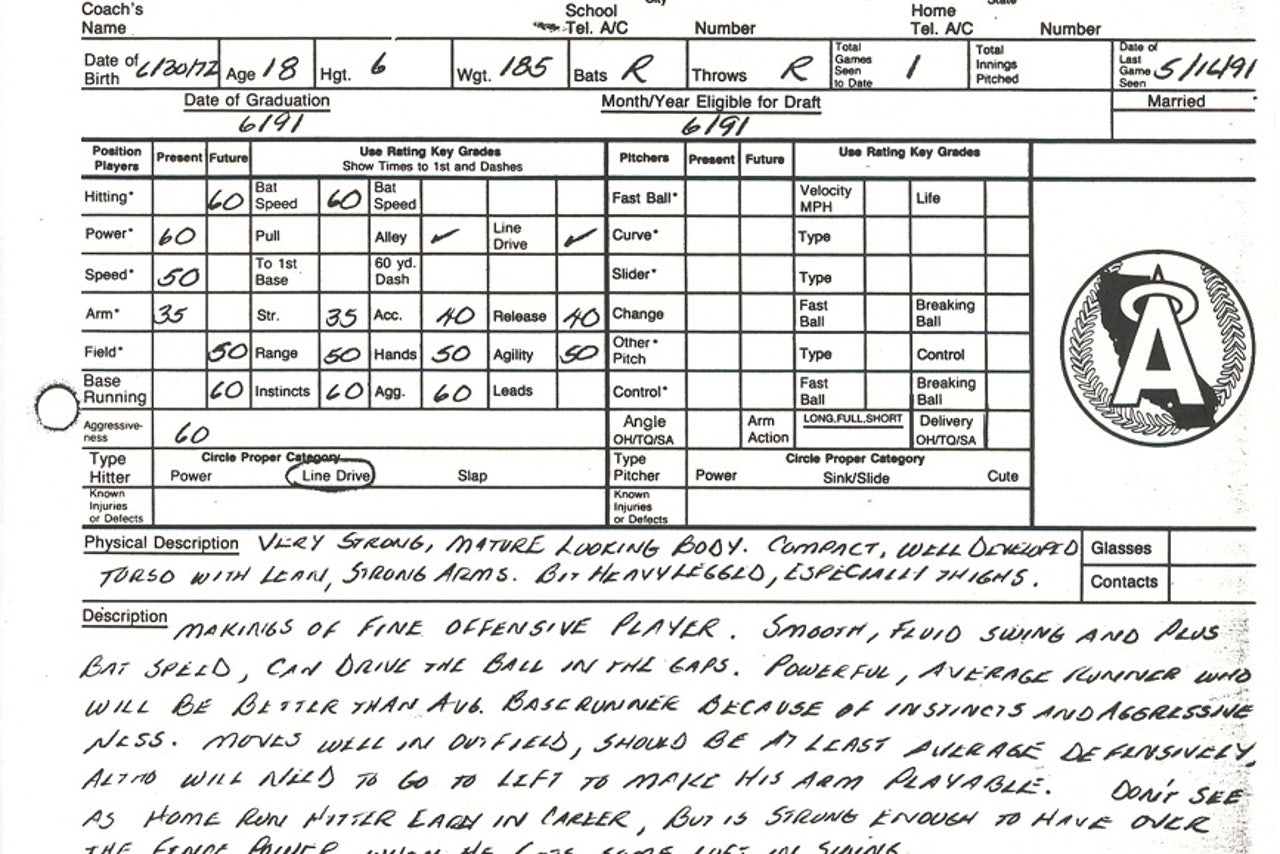 Coach's School Home
Name Tel. A/C Number Tel. A/C Number
Date of Birth 6/30/72 Age 18 Hgt. 6 Wgt. 185 Bats R Throws R Total Games Seen to Date 1 Total Innings Pitched Date of Last Game Seen 5/16/91
Date of Graduation Month/Year Eligible for Draft Married
6/91 6/91
Position Players Present Future Use Rating Key Grades Show Times to 1st and Dashes Pitchers Present Future Use Rating Key Grades
Hitting* 60 Bat Speed 60 Bat Speed Fast Ball* Velocity MPH Life
Power* 60 Pull Alley ✓ Line Drive ✓ Curve* Type
Speed* 50 To 1st Base 60 yd. Dash Slider* Type
Arm* 35 Str. 35 Acc. 40 Release 40 Change Fast Ball Breaking Ball
Field* 50 Range 50 Hands 50 Agility 50 Other* Pitch Type Control
Base Running 60 Instincts 60 Agg. 60 Leads Control* Fast Ball Breaking Ball
Aggressive-ness 60 Angle OH/TQ/SA Arm Action LONG.FULL.SHORT Delivery OH/TQ/SA
Type Hitter Circle Proper Category Power Line Drive Slap Type Pitcher Circle Proper Category Power Sink/Slide Cute
Known Injuries or Defects Known Injuries or Defects
A
Physical Description VERY STRONG, MATURE LOOKING BODY. COMPACT, WELL DEVELOPED Glasses
TORSO WITH LEAN, STRONG ARMS. BIT HEAVY LEGGED, ESPECIALLY THIGHS. Contacts
Description MAKINGS OF FINE OFFENSIVE PLAYER. SMOOTH, FLUID SWING AND PLUS
BAT SPEED, CAN DRIVE THE BALL IN THE GAPS. POWERFUL, AVERAGE RUNNER WHO
WILL BE BETTER THAN AVG. BASERUNNER BECAUSE OF INSTINCTS AND AGGRESSIVE
NESS. MOVES WELL IN OUTFIELD, SHOULD BE AT LEAST AVERAGE DEFENSIVELY,
ALTHO WILL NEED TO GO TO LEFT TO MAKE HIS ARM PLAYABLE. DON'T SEE
AS HOME RUN HITTER EARLY IN CAREER, BUT IS STRONG ENOUGH TO HAVE OVER
THE FENCE POWER WHEN HE GETS SOME LOFT IN SWING.